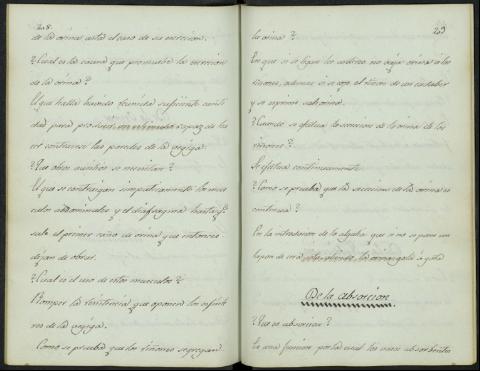 208.
de la orina hasta el caso de su excrecion.
¿Cual es la causa que promueve la excrecion
de la orina?
El que halla habido reunida suficiente canti
dad para producir un estimulo capaz de ha
cer contraerse las paredes de la vegiga.
¿Que otros ausilios se necesitan?
El que se contraigan simpaticamente los mus
culos abdominales y el diafragma hasta qe.
sale el primer caño de orina y que entonces
dejan de obrar.
¿Cual es el uso de estos musculos?
Romper la resistencia que oponen los esfinte
res de la vegiga.
Como se prueba que los riñones segregan
209
la orina?
En que si se ligan los ureteres no baja orina a los
riñones, ademas si se coge el riñon de un cadaber
y se esprime sale orina.
¿Cuando se efectua la secrecion de la orina de los
riñones?
Se efectua continuamente
¿Como se prueba que la secrecion de la orina es
continua?
En la introducion de la algalia que si no se pone un
tapon de cera, sale la orina gota a gota
De la absorcion.
¿Que es absorcion?
Es una funcion por la cual los vasos absorbentes